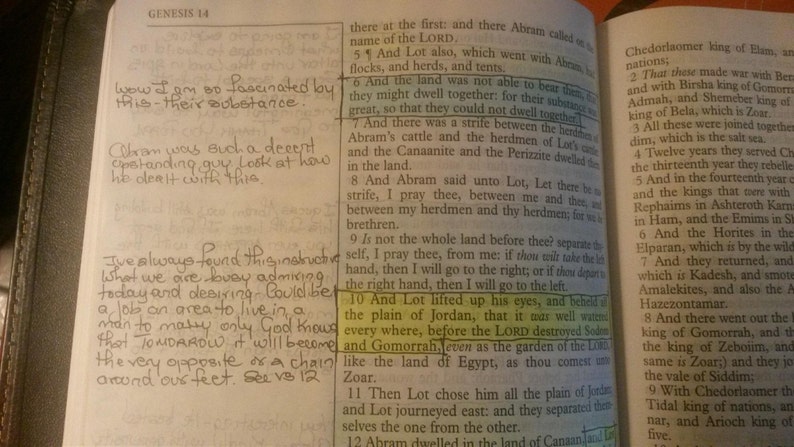 GENESIS 14
wow I am so fascinated by
this - their substance.
Abram was such a decent
upstanding guy look at how
he dealt with this.
I've always found this instructive
What we are busy admiring
today and desiring - Could be
a job an area to live in a
man to marry only God knows
that TOMORROW it will become
the very opposite or a chain
around our feet. See vs 12
there at the first: and there Abram called on the
name of the LORD.
5 ¶ And Lot also, which went with Abram, had
flocks, and herds, and tents.
6 And the land was not able to bear them, that
they might dwell together: for their substance was
great, so that they could not dwell together.
7 And there was a strife between the herdmen of
Abram's cattle and the herdmen of Lot's cattle:
and the Canaanite and the Perizzite dwelled then
in the land.
8 And Abram said unto Lot, Let there be no
strife, I pray thee, between me and thee, and
between my herdmen and thy herdmen; for we be
brethren.
9 Is not the whole land before thee? separate thy-
self, I pray thee, from me: if thou wilt take the left
hand, then I will go to the right; or if thou depart to
the right hand, then I will go to the left.
10 And Lot lifted up his eyes, and beheld all
the plain of Jordan, that it was well watered
every where, before the LORD destroyed Sodom
and Gomorrah, even as the garden of the LORD,
like the land of Egypt, as thou comest unto
Zoar.
11 Then Lot chose him all the plain of Jordan;
and Lot journeyed east: and they separated them-
selves the one from the other.
12 Abram dwelled in the land of Canaan, and Lot
Chedorlaomer king of Elam, and
nations;
2 That these made war with Bera
and with Birsha king of Gomorrah
Admah, and Shemeber king of
king of Bela, which is Zoar.
3 All these were joined together
dim, which is the salt sea.
4 Twelve years they served Ch
the thirteenth year they rebelled
5 And in the fourteenth year c
and the kings that were with
Rephaims in Ashteroth Karn
in Ham, and the Emims in Sh
6 And the Horites in their
Elparan, which is by the wild
7 And they returned, and
which is Kadesh, and smote
Amalekites, and also the A
Hazezontamar.
8 And there went out the k
king of Gomorrah, and th
the king of Zeboiim, and
same is Zoar;) and they jo
the vale of Siddim;
9 With Chedorlaomer the
Tidal king of nations, and
nar, and Arioch king of
five.